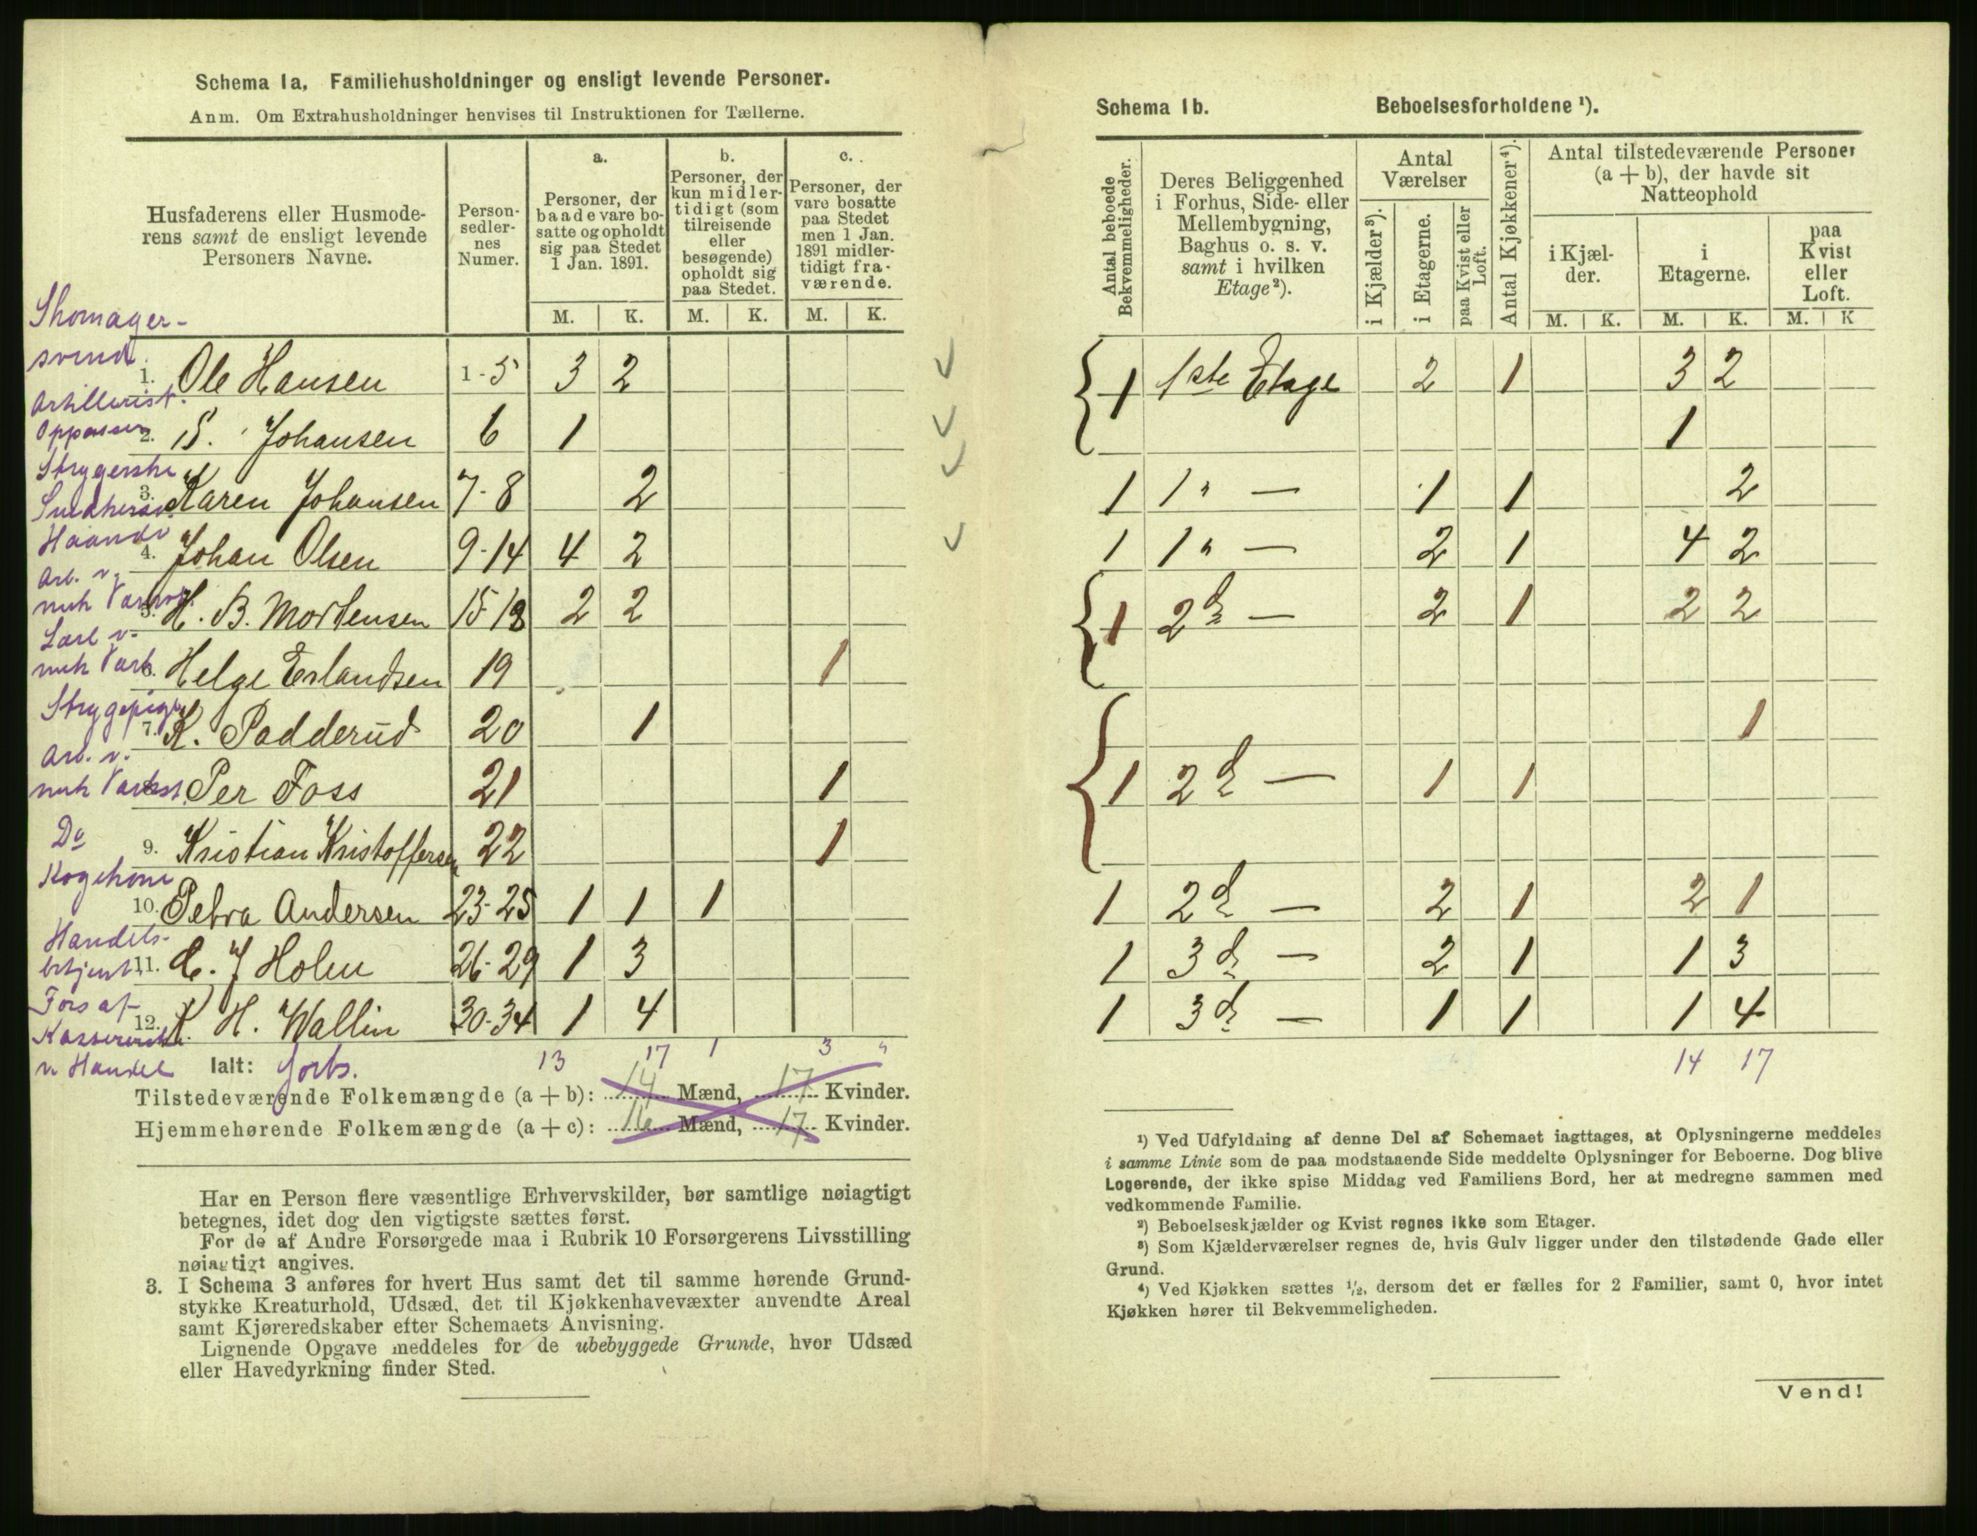 Schema 1a, Familiehusholdninger og ensligt levende Personer.
Anm. Om Extrahusholdninger henvises til Instruktionen for Tællerne.
Husfaderens eller Husmoderens samt de ensligt levende Personers Navne.
Personsedlernes Numer.
a. Personer, der baade vare bosatte og opholdt sig paa Stedet 1 Jan. 1891.
b. Personer, der kun midlertidigt (som tilreisende eller besøgende) opholdt sig paa Stedet.
c. Personer, der vare bosatte paa Stedet men 1 Jan. 1891 midlertidigt fraværende.
M. K. M. K. M. K.
Skomager-
svend.
1. Ole Hansen 1-5 3 2
Artillerist.
Oppasser
2. S. Johansen 6 1
Strygerske
3. Karen Johansen 7-8 2
Snedkersv.
Haandv
4. Johan Olsen 9-14 4 2
Arb. v.
mek Værksted
5. H. B. Mortensen 15-18 2 2
Lærl v.
mek Værk
6. Helge Erlandsen 19 1
Strygepige
7. K. Padderud 20 1
Arb. v.
mek Værkst.
8. Per Foss 21 1
Do
9. Kristian Kristoffersen 22 1
Kogekone
10. Petra Andersen 23-25 1 1 1
Handels-
betjent
11. C. J Holm 26-29 1 3
Fors af
12. K. H. Wallin 30-34 1 4
Kassererske
v. Handel
Ialt: forts. 13 17 1 3 "
Tilstedeværende Folkemængde (a + b): 14 Mænd, 17 Kvinder.
Hjemmehørende Folkemængde (a + c): 16 Mænd, 17 Kvinder.
Har en Person flere væsentlige Erhvervskilder, bør samtlige nøiagtigt
betegnes, idet dog den vigtigste sættes først.
For de af Andre Forsørgede maa i Rubrik 10 Forsørgerens Livsstilling
nøiagtigt angives.
3. I Schema 3 anføres for hvert Hus samt det til samme hørende Grund-
stykke Kreaturhold, Udsæd, det til Kjøkkenhavevæxter anvendte Areal
samt Kjøreredskaber efter Schemaets Anvisning.
Lignende Opgave meddeles for de ubebyggede Grunde, hvor Udsæd
eller Havedyrkning finder Sted.
Schema 1b. Beboelsesforholdene ¹).
Antal beboede Bekvemmeligheder.
Deres Beliggenhed i Forhus, Side- eller Mellembygning, Baghus o. s. v. samt i hvilken Etage²).
Antal Værelser
i Kjælder³).
i Etagerne.
paa Kvist eller Loft.
Antal Kjøkkener⁴).
Antal tilstedeværende Personer (a + b), der havde sit Natteophold
i Kjælder.
i Etagerne.
paa Kvist eller Loft.
M. K. M. K. M. K
1 1ste Etage 2 1 3 2
1
1 1" — 1 1 2
1 1" — 2 1 4 2
1 2d — 2 1 2 2
1
1 2d — 1 1
1 2d — 2 1 2 1
1 3d — 2 1 1 3
1 3d — 1 1 1 4
14 17
¹) Ved Udfyldning af denne Del af Schemaet iagttages, at Oplysningerne meddeles
i samme Linie som de paa modstaaende Side meddelte Oplysninger for Beboerne. Dog blive
Logerende, der ikke spise Middag ved Familiens Bord, her at medregne sammen med
vedkommende Familie.
²) Beboelseskjælder og Kvist regnes ikke som Etager.
³) Som Kjælderværelser regnes de, hvis Gulv ligger under den tilstødende Gade eller
Grund.
⁴) Ved Kjøkken sættes ½, dersom det er fælles for 2 Familier, samt 0, hvor intet
Kjøkken hører til Bekvemmeligheden.
Vend!